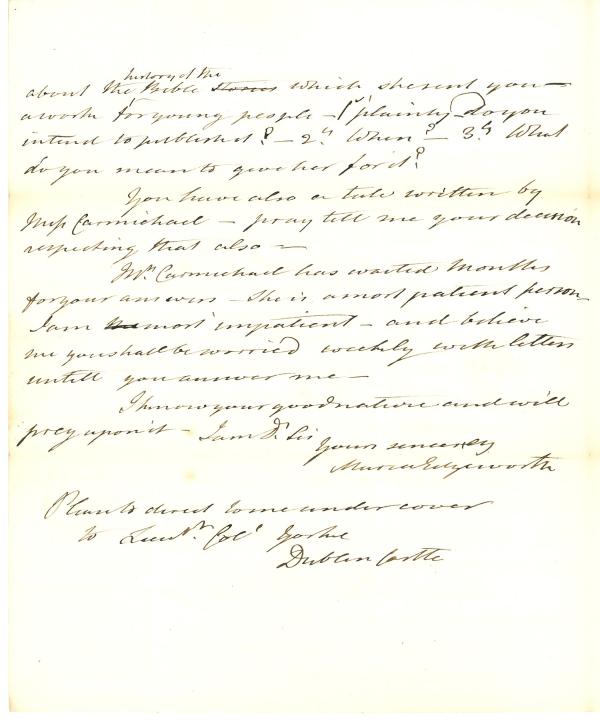 history of the
about the Bible stories which she sent you —
a work for young people — 1st plainly — do you
intend to publish it? — 2d. When? — 3d. What
do you mean to give her for it?
You have also a tale written by
Miss Carmichael — pray tell me your decision
respecting that also —
Mrs Carmichael has waited months
for your answers — She is a most patient person
I am most impatient — and believe
me you shall be worried weekly with letters
untill you answer me —
I know your good nature and will
prey upon it — I am Dr Sir
Yours sincerely
Maria Edgeworth
Please to direct to me under cover
to Lieut. Col Yorke
Dublin Castle